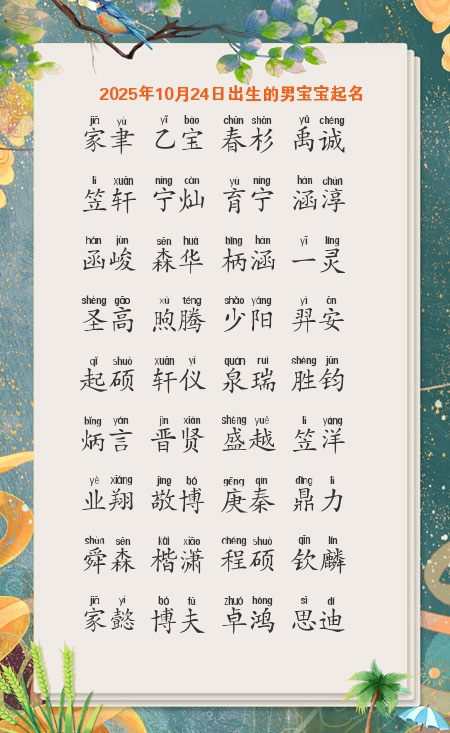 2025年10月24日出生的男宝宝起名
jiā yù yǐ bǎo chūn shān yǔ chéng
家聿 乙宝 春杉 禹诚
lì xuān níng càn yù níng hán chún
笠轩 宁灿 育宁 涵淳
hán jùn sēn huá bǐng hán yī líng
函峻 森华 柄涵 一灵
shèng gāo xù téng shǎo yáng yì ān
圣高 煦腾 少阳 羿安
qǐ shuò xuān yí quán ruì shèng jūn
起硕 轩仪 泉瑞 胜钧
bǐng yán jìn xián shèng yuè lì yáng
炳言 晋贤 盛越 笠洋
yè xiáng jìng bó gēng qín dǐng lì
业翔 敬博 庚秦 鼎力
shùn sēn kǎi xiāo chéng shuò qīn lín
舜森 楷潇 程硕 钦麟
jiā yì bó fū zhuó hóng sī dí
家懿 博夫 卓鸿 思迪